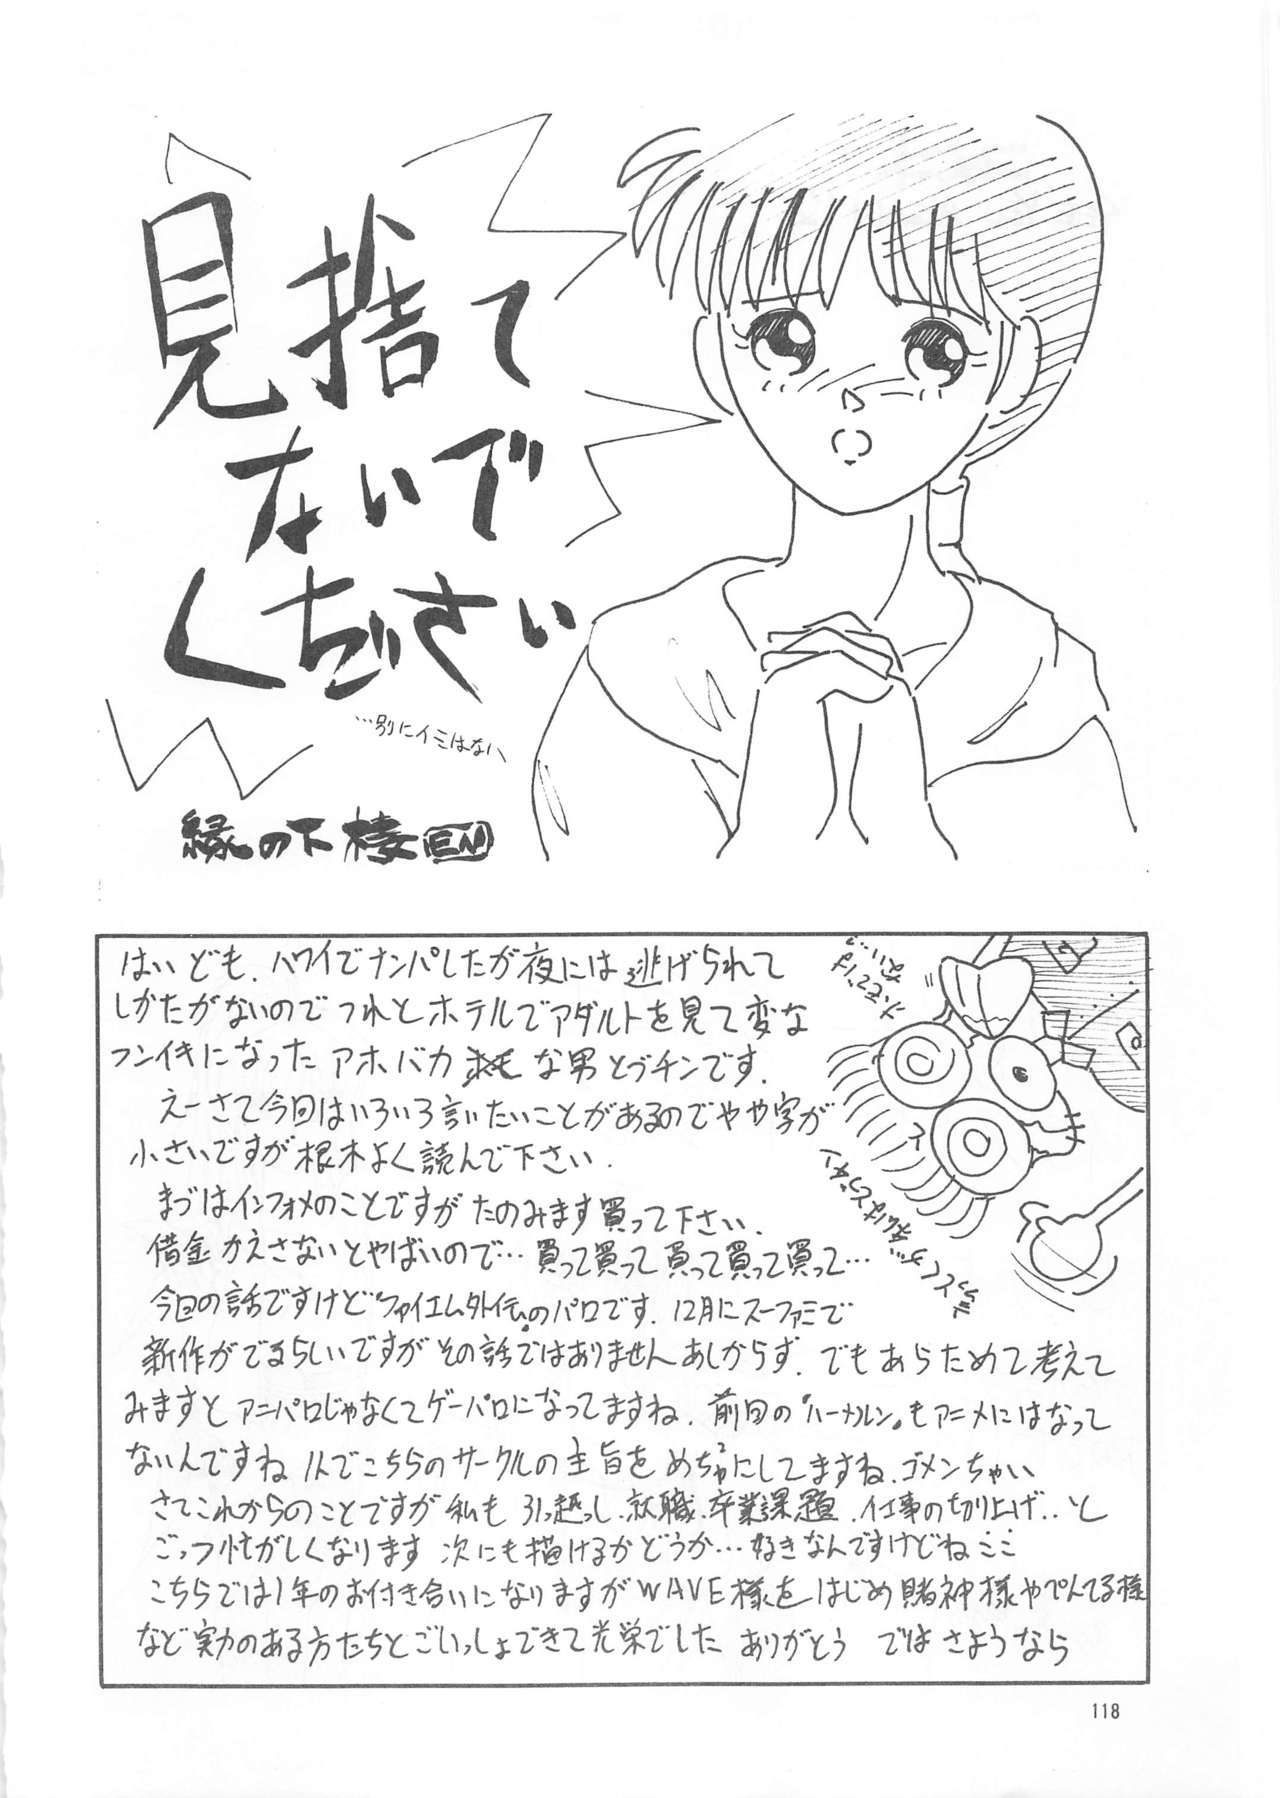 見捨て
ないで
ください
…別にイミはない
縁の下 棲 EN
はいども、ハワイでナンパしたが夜には逃げられて
しかたがないのでつれとホテルでアダルトを見て変な
フンイキになったアホバカ な男とゔチンです.
えーさて今回はいろいろ言いたいことがあるのでやや字が
小さいですが根木よく読んで下さい.
まづはインフォメのことですがたのみます買って下さい.
借金かえさないとやばいので…買って買って買って買って買って…
今回の話ですけど"ファイエム外伝"のパロです. 12月にスーファミで
新作がでるらしいですがその話ではありませんあしからず. でもあらためて考えて
みますとアニパロじゃなくてゲーパロになってますね. 前回の"ハーメルン"もアニメにはなって
ないんですね 1人でこちらのサークルの主旨をめちゃ2にしてますね.ゴメンちゃい
さてこれからのことですが私も 引っ越し.就職.卒業課題.仕事の切り上げ..と
ごっつ忙がしくなります 次にも描けるかどうか…好きなんですけどね
こちらでは1年のお付き合いになりますがWAVE様をはじめ賭神様やぺんてる様
など実力のある方たちとごいっしょできて光栄でした ありがとう ではさようなら
118